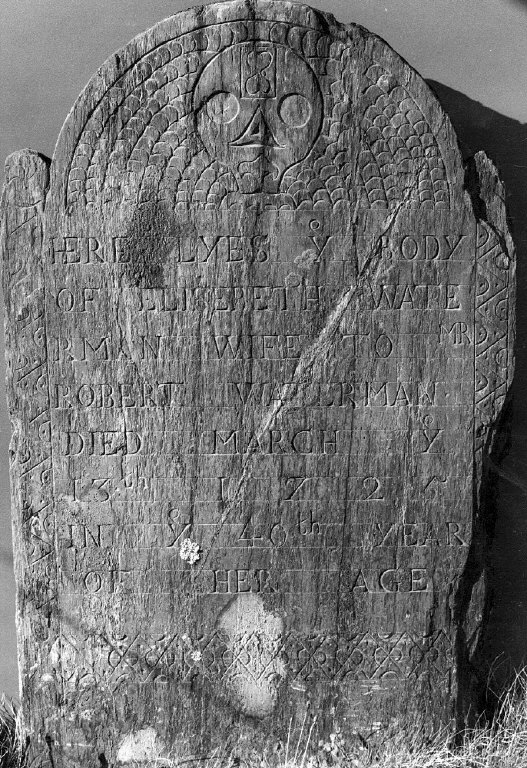 HERE LYES Yͤ BODY
OF ELISEBETH WATE
RMAN WIFE TO MR
ROBERT WATERMAN
DIED MARCH Yͤ
13th 172
IN Yͤ 46th YEAR
OF HER AGE